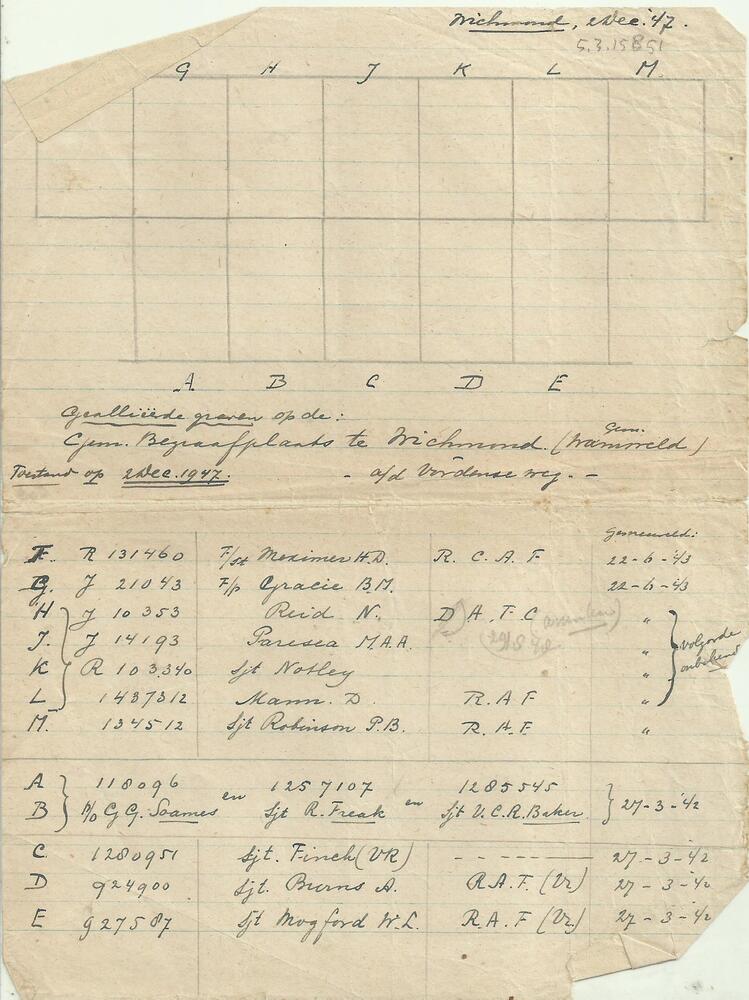 Wichmond, 2 Dec. '47.
5.3.15851
G H J K L M.
A B C D E
Geallieëde graven op de:
Gem. Begraafplaats te Wichmond. (Gem. Warnsveld)
Toestand op 2 Dec. 1947. - a/d Vordense weg. -
Gesneuveld:
F. R 131460 F/st Meximer H.D. R. C. A. F 22-6-43
G. J 21043 F/p Gracie B.M. 22-6-43
H J 10353 Reid N. D A. F C "
J. J 14193 Paresea M.A.A. "
K R 103340 Sjt Notley "
L 1437312 Mann. D. R. A. F "
volgorde onbekend
M. 134512 Sjt Robinson P.B. R. A. F. "
A 118096 en 1257107 en 1285545
B P/o G.G. Soames Sjt R. Freak Sjt V.C.R. Baker 27-3-'42
C. 1280951 Sjt. Finch (VR) - - - - - - - 27-3-42
D 924900 Sjt. Burns A. R.A.F. (Vr) 27-3-42
E 927587 Sjt Mogford W.L. R.A.F (Vr.) 27-3-42